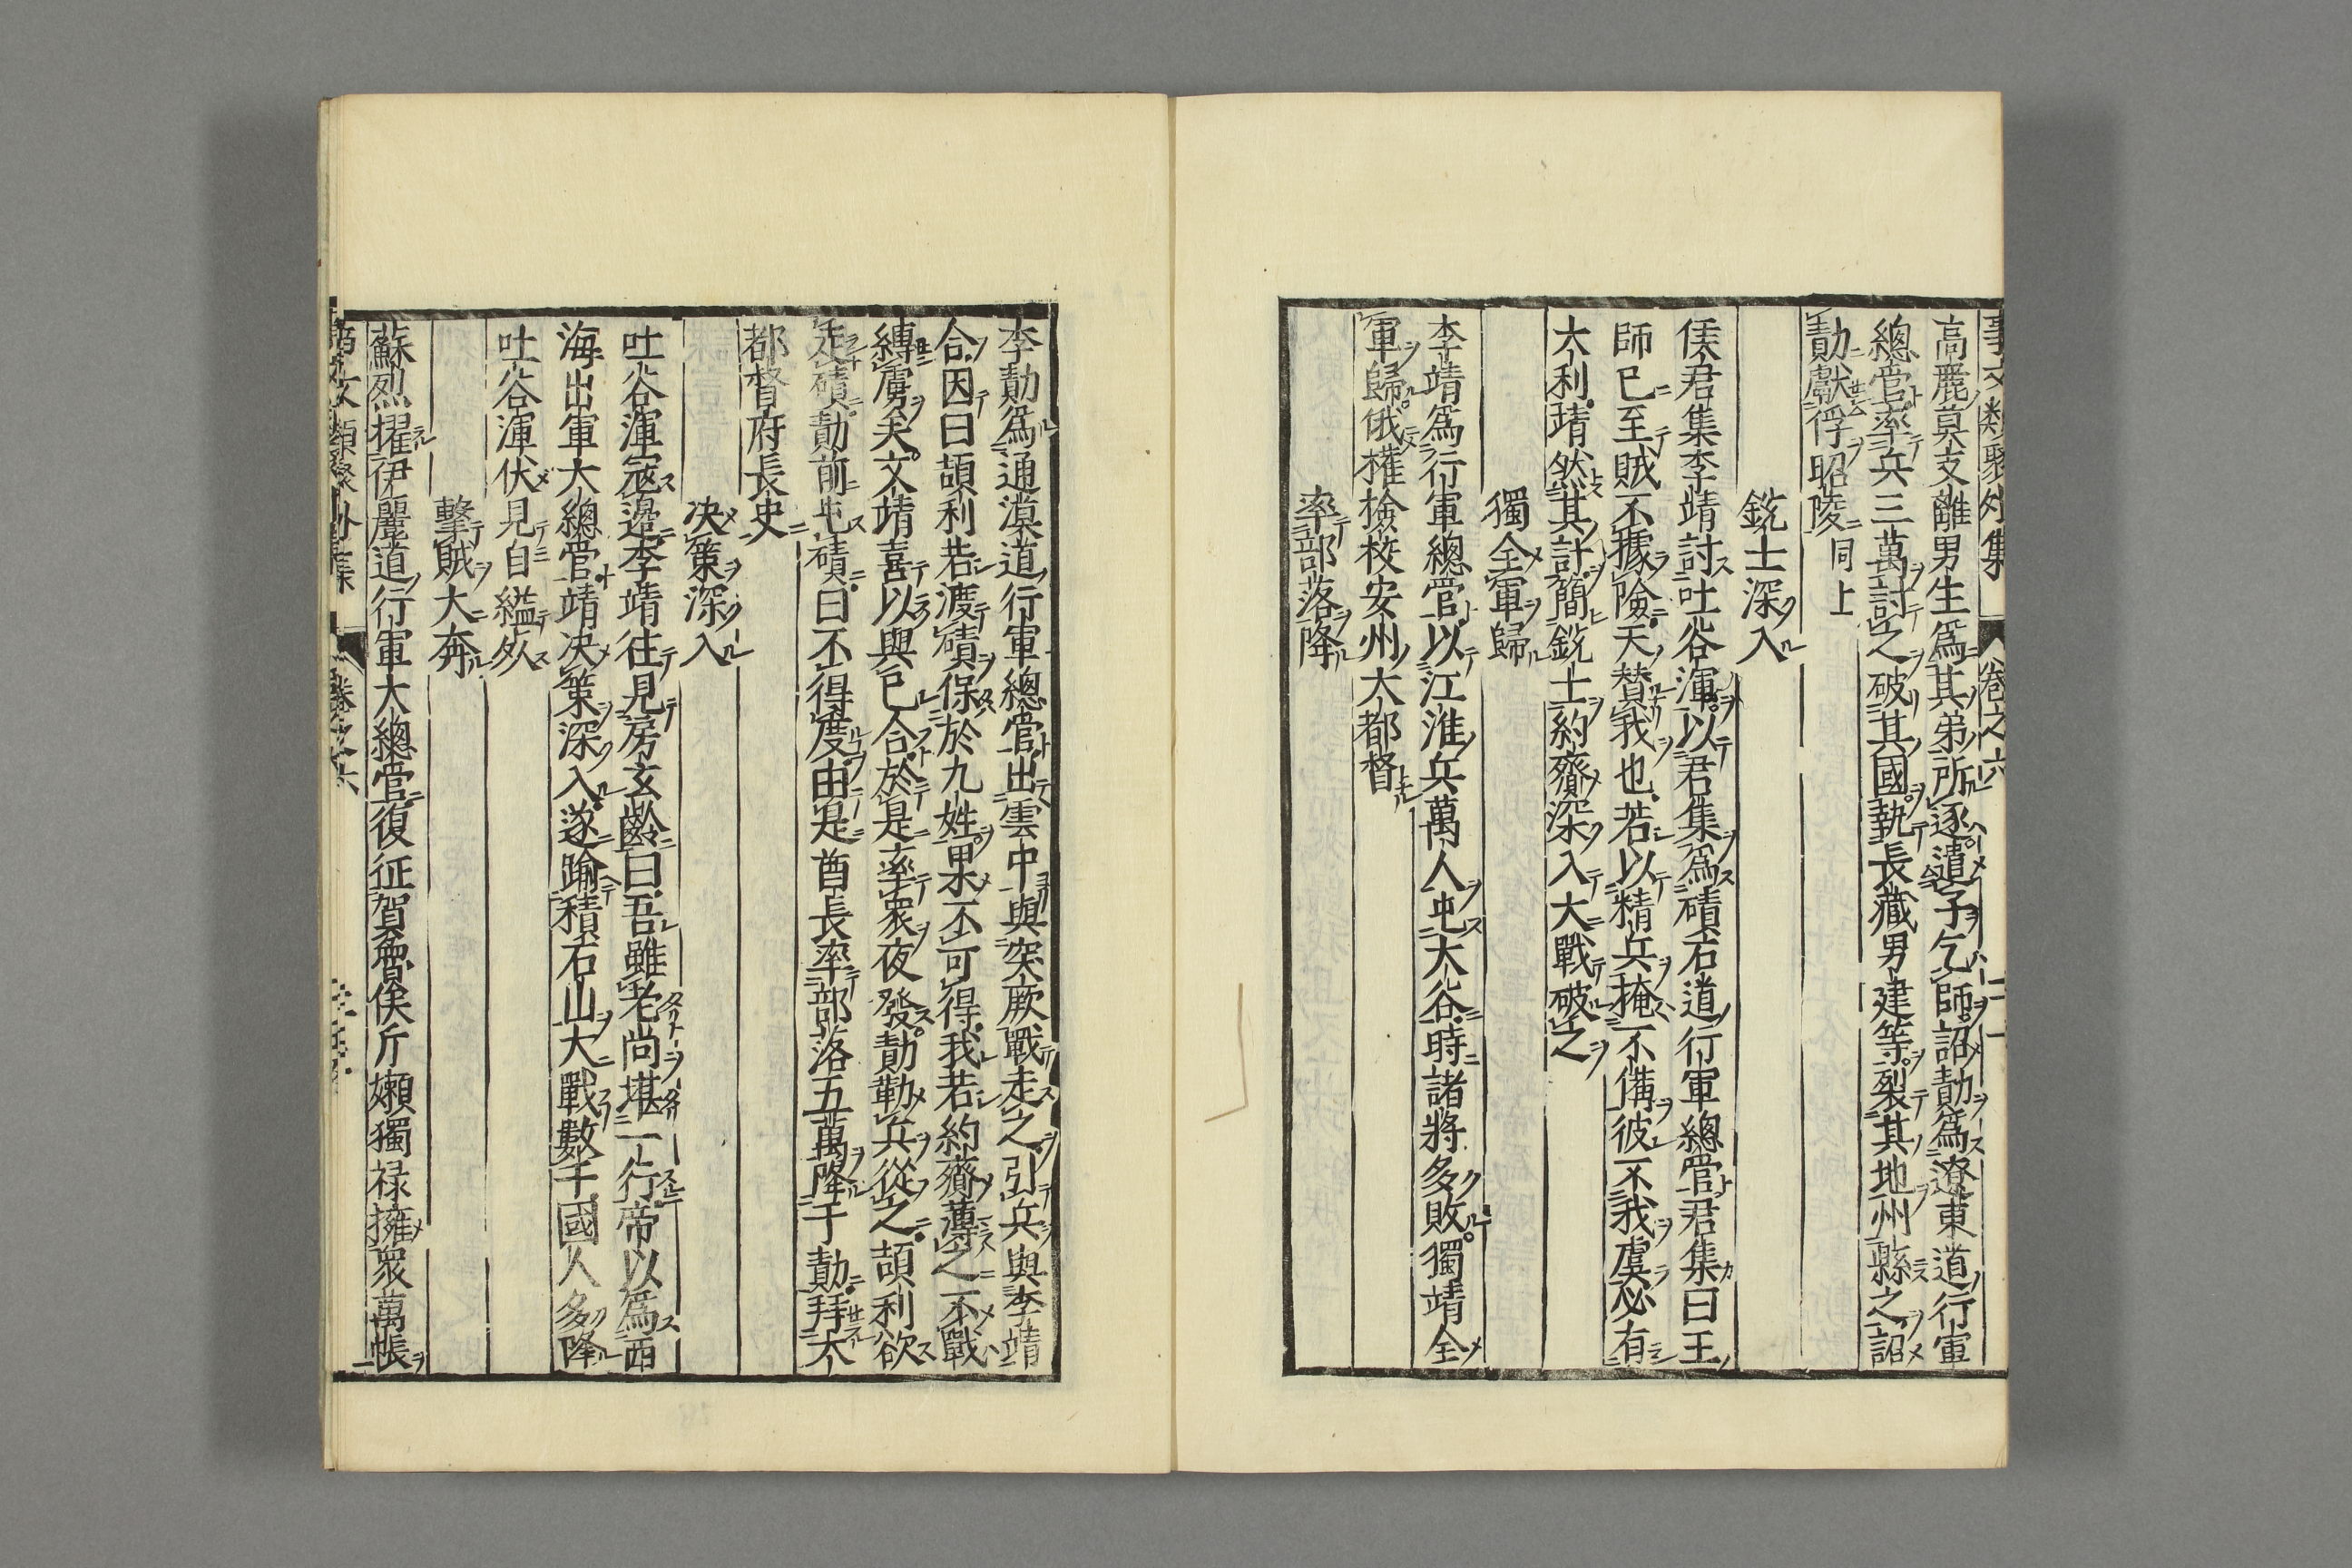 事文類聚外集 卷之六
高麗莫支離男生爲其弟所逐遣子乞師詔勣爲遼東道行軍
總管率兵三萬討之破其國執長藏男建等裂其地州縣之詔
勣獻俘昭陵同上
銳士深入
侯君集李靖討吐谷渾以君集爲磧石道行軍總管君集曰王
師已至賊不據險天贊我也若以精兵掩不備彼不我虞必有
大利靖然其計簡銳士約齎深入大戰破之
獨全軍歸
李靖爲行軍總管以江淮兵萬人屯大谷時諸將多敗獨靖全
軍歸俄權檢校安州大都督
率部落降
李勣爲通漠道行軍總管出雲中與突厥戰走之引兵與李靖
合因曰頡利若渡磧保於九姓果不可得我若約齎薄之不戰
縛虜矣文靖喜以與已合於是率衆夜發勣勒兵從之頡利欲
走磧勣前屯磧曰不得度由是酋長率部落五萬降于勣拜大
都督府長史
决策深入
吐谷渾寇邊李靖往見房玄齡曰吾雖老尚堪一行帝以爲西
海出軍大總管靖决策深入遂踰積石山大戰數千國人多降
吐谷渾伏見自縊死
擊賊大奔
蘇烈擢伊麗道行軍大總管復征賀魯俟斤嬾獨祿擁衆萬帳